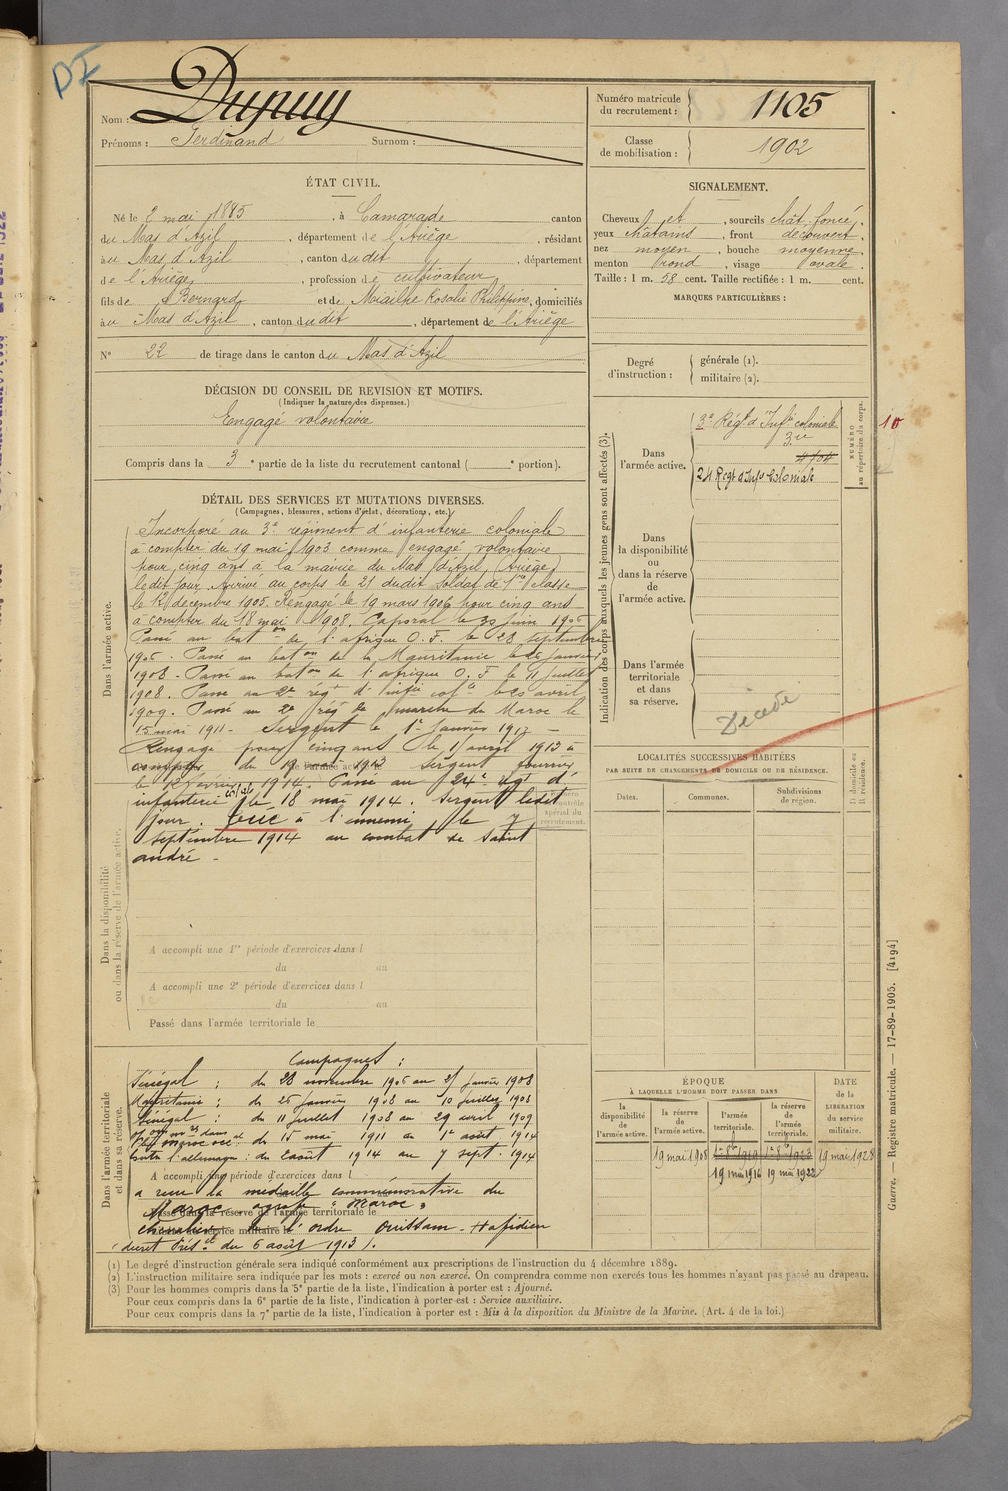 DI
Nom : Dupuy
Prénoms : Ferdinand Surnom :
Numéro matricule du recrutement : 1105
Classe de mobilisation : 1902
ÉTAT CIVIL.
Né le 2 mai 1885, à Camarade canton
du Mas d'Azil, département de l'Ariège, résidant
au Mas d'Azil, canton dudit, département
de l'Ariège, profession de cultivateur
fils de Bernard et de Miailhe Rosalie Philippine, domiciliés
au Mas d'Azil, canton dudit, département de l'Ariège
N° 22 de tirage dans le canton du Mas d'Azil
SIGNALEMENT.
Cheveux et, sourcils chât. foncé,
yeux châtains, front découvert,
nez moyen, bouche moyenne,
menton rond, visage ovale.
Taille : 1 m. 58 cent. Taille rectifiée : 1 m. cent.
MARQUES PARTICULIÈRES :
Degré d'instruction : générale (1). militaire (2).
DÉCISION DU CONSEIL DE REVISION ET MOTIFS.
(Indiquer la nature des dispenses.)
Engagé volontaire
Compris dans la 3e partie de la liste du recrutement cantonal ( e portion).
DÉTAIL DES SERVICES ET MUTATIONS DIVERSES.
(Campagnes, blessures, actions d'éclat, décorations, etc.)
Dans l'armée active.
Incorporé au 3e régiment d'infanterie coloniale
à compter du 19 mai 1903 comme engagé volontaire
pour cinq ans à la mairie du Mas d'Azil (Ariège)
ledit jour. Arrivé au corps le 21 dudit. Soldat de 1re classe
le 12 décembre 1905. Rengagé le 19 mars 1906 pour cinq ans
à compter du 18 mai 1908. Caporal le 30 juin 1906
Passé au baton de l'afrique O.F. le 28 septembre
1906. Passé au baton de la Mauritanie le 26 janvier
1908. Passé au baton de l'afrique O.F le 11 juillet
1908. Passé au 2e régt d'infie colle le 30 avril
1909. Passé au 2e rég de marche du Maroc le
15 mai 1911. Sergent le 1er janvier 1912
Rengagé pour cinq ans le 1 avril 1913 à
compter du 19 mai 1913 Sergent fourrier
le 12 février 1914. Passé au 24e régt d'
infanterie colale le 18 mai 1914. Sergent ledit
jour. Tué à l'ennemi le 7
septembre 1914 au combat de Saint
andré -
Dans la disponibilité ou dans la réserve de l'armée active.
A accompli une 1re période d'exercices dans l
du au
A accompli une 2e période d'exercices dans l
du au
Passé dans l'armée territoriale le
Dans l'armée territoriale et dans sa réserve.
Campagnes :
Sénégal : du 28 novembre 1906 au 25 janvier 1908
Mauritanie : du 26 janvier 1908 au 10 juillet 1908
Sénégal : du 11 juillet 1908 au 29 avril 1909
du 15 mai 1911 au 1er août 1914
contre l'allemagne : du 2 août 1914 au 7 sept. 1914
A accompli une période d'exercices dans l
a reçu la médaille commémorative du
Maroc agrafe "Maroc"
Passé dans la réserve de l'armée territoriale le
chevalier de l'ordre Ouissam-Hafidien
(décret Présel du 6 août 1913).
Indication des corps auxquels les jeunes gens sont affectés (3).
NUMÉRO au répertoire du corps.
Dans l'armée active. 3e Régt d'Infie coloniale
24 Regt d'Infie Coloniale
10
Dans la disponibilité ou dans la réserve de l'armée active.
Dans l'armée territoriale et dans sa réserve.
Décédé
LOCALITÉS SUCCESSIVES HABITÉES
PAR SUITE DE CHANGEMENTS DE DOMICILE OU DE RÉSIDENCE.
Dates. Communes. Subdivisions de région. D domicile ou R résidence.
ÉPOQUE
À LAQUELLE L'HOMME DOIT PASSER DANS
la disponibilité de l'armée active. la réserve de l'armée active. l'armée territoriale. la réserve de l'armée territoriale.
DATE de la LIBÉRATION du service militaire.
19 mai 1908 1er 8bre 1919 1er 8bre 1923 19 mai 1928
19 mai 1916 19 mai 1922
(1) Le degré d'instruction générale sera indiqué conformément aux prescriptions de l'instruction du 4 décembre 1889.
(2) L'instruction militaire sera indiquée par les mots : exercé ou non exercé. On comprendra comme non exercés tous les hommes n'ayant pas passé au drapeau.
(3) Pour les hommes compris dans la 5e partie de la liste, l'indication à porter est : Ajourné.
Pour ceux compris dans la 6e partie de la liste, l'indication à porter est : Service auxiliaire.
Pour ceux compris dans la 7e partie de la liste, l'indication à porter est : Mis à la disposition du Ministre de la Marine. (Art. 4 de la loi.)
Guerre. — Registre matricule. — 17-89-1905. [4194]